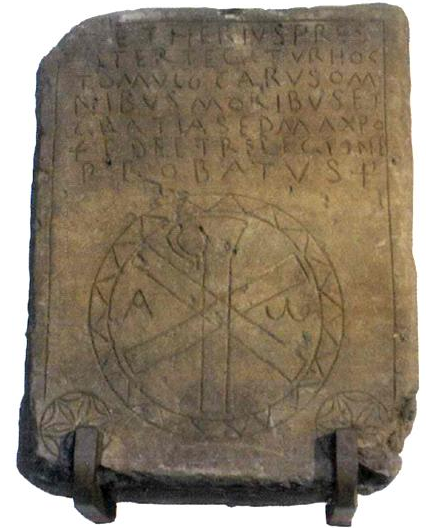 ETHERIVSPRES
BITERTEGETVRHOC
TOMVLOCARVSOM
NIBVSMORIBVSET
GRATIASEDMAXPO
PROBATVS
A ω